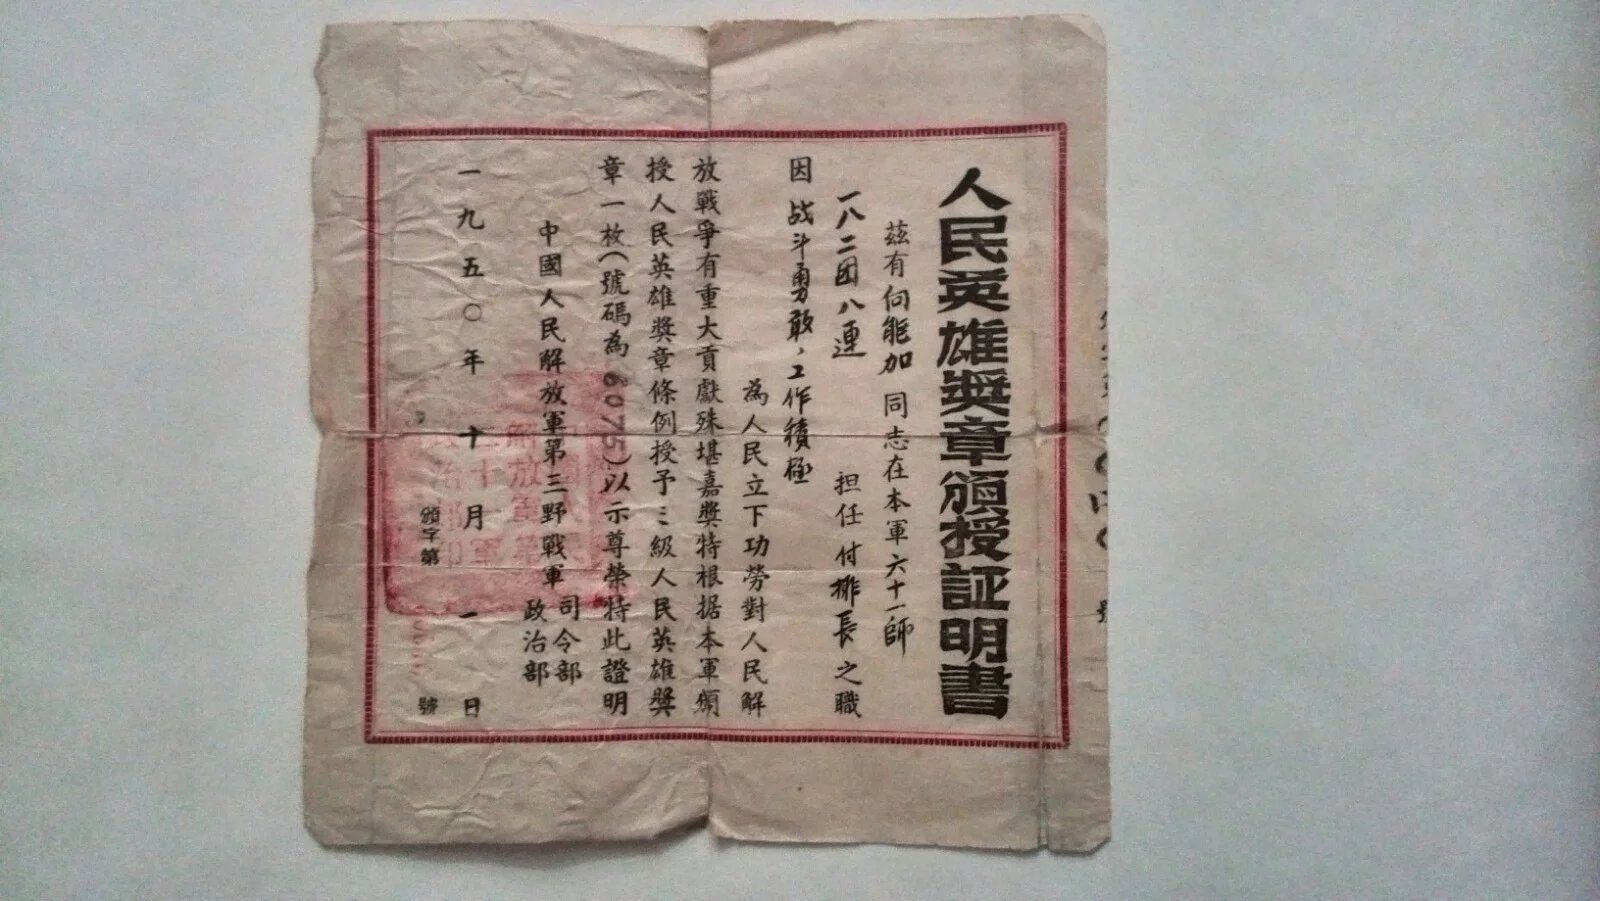 人民英雄獎章頒授証明書
茲有向能加同志在本軍六十一師
一八二团八連 担任付排長之職
因战斗勇敢，工作積極
為人民立下功勞對人民解
放戰爭有重大貢獻殊堪嘉獎特根据本軍頒
授人民英雄獎章條例授予三級人民英雄獎
章一枚(號碼為6075)以示尊榮特此證明
中國人民解放軍第三野戰軍 司令部
政治部
一九五〇年十月一日
頒字第 號